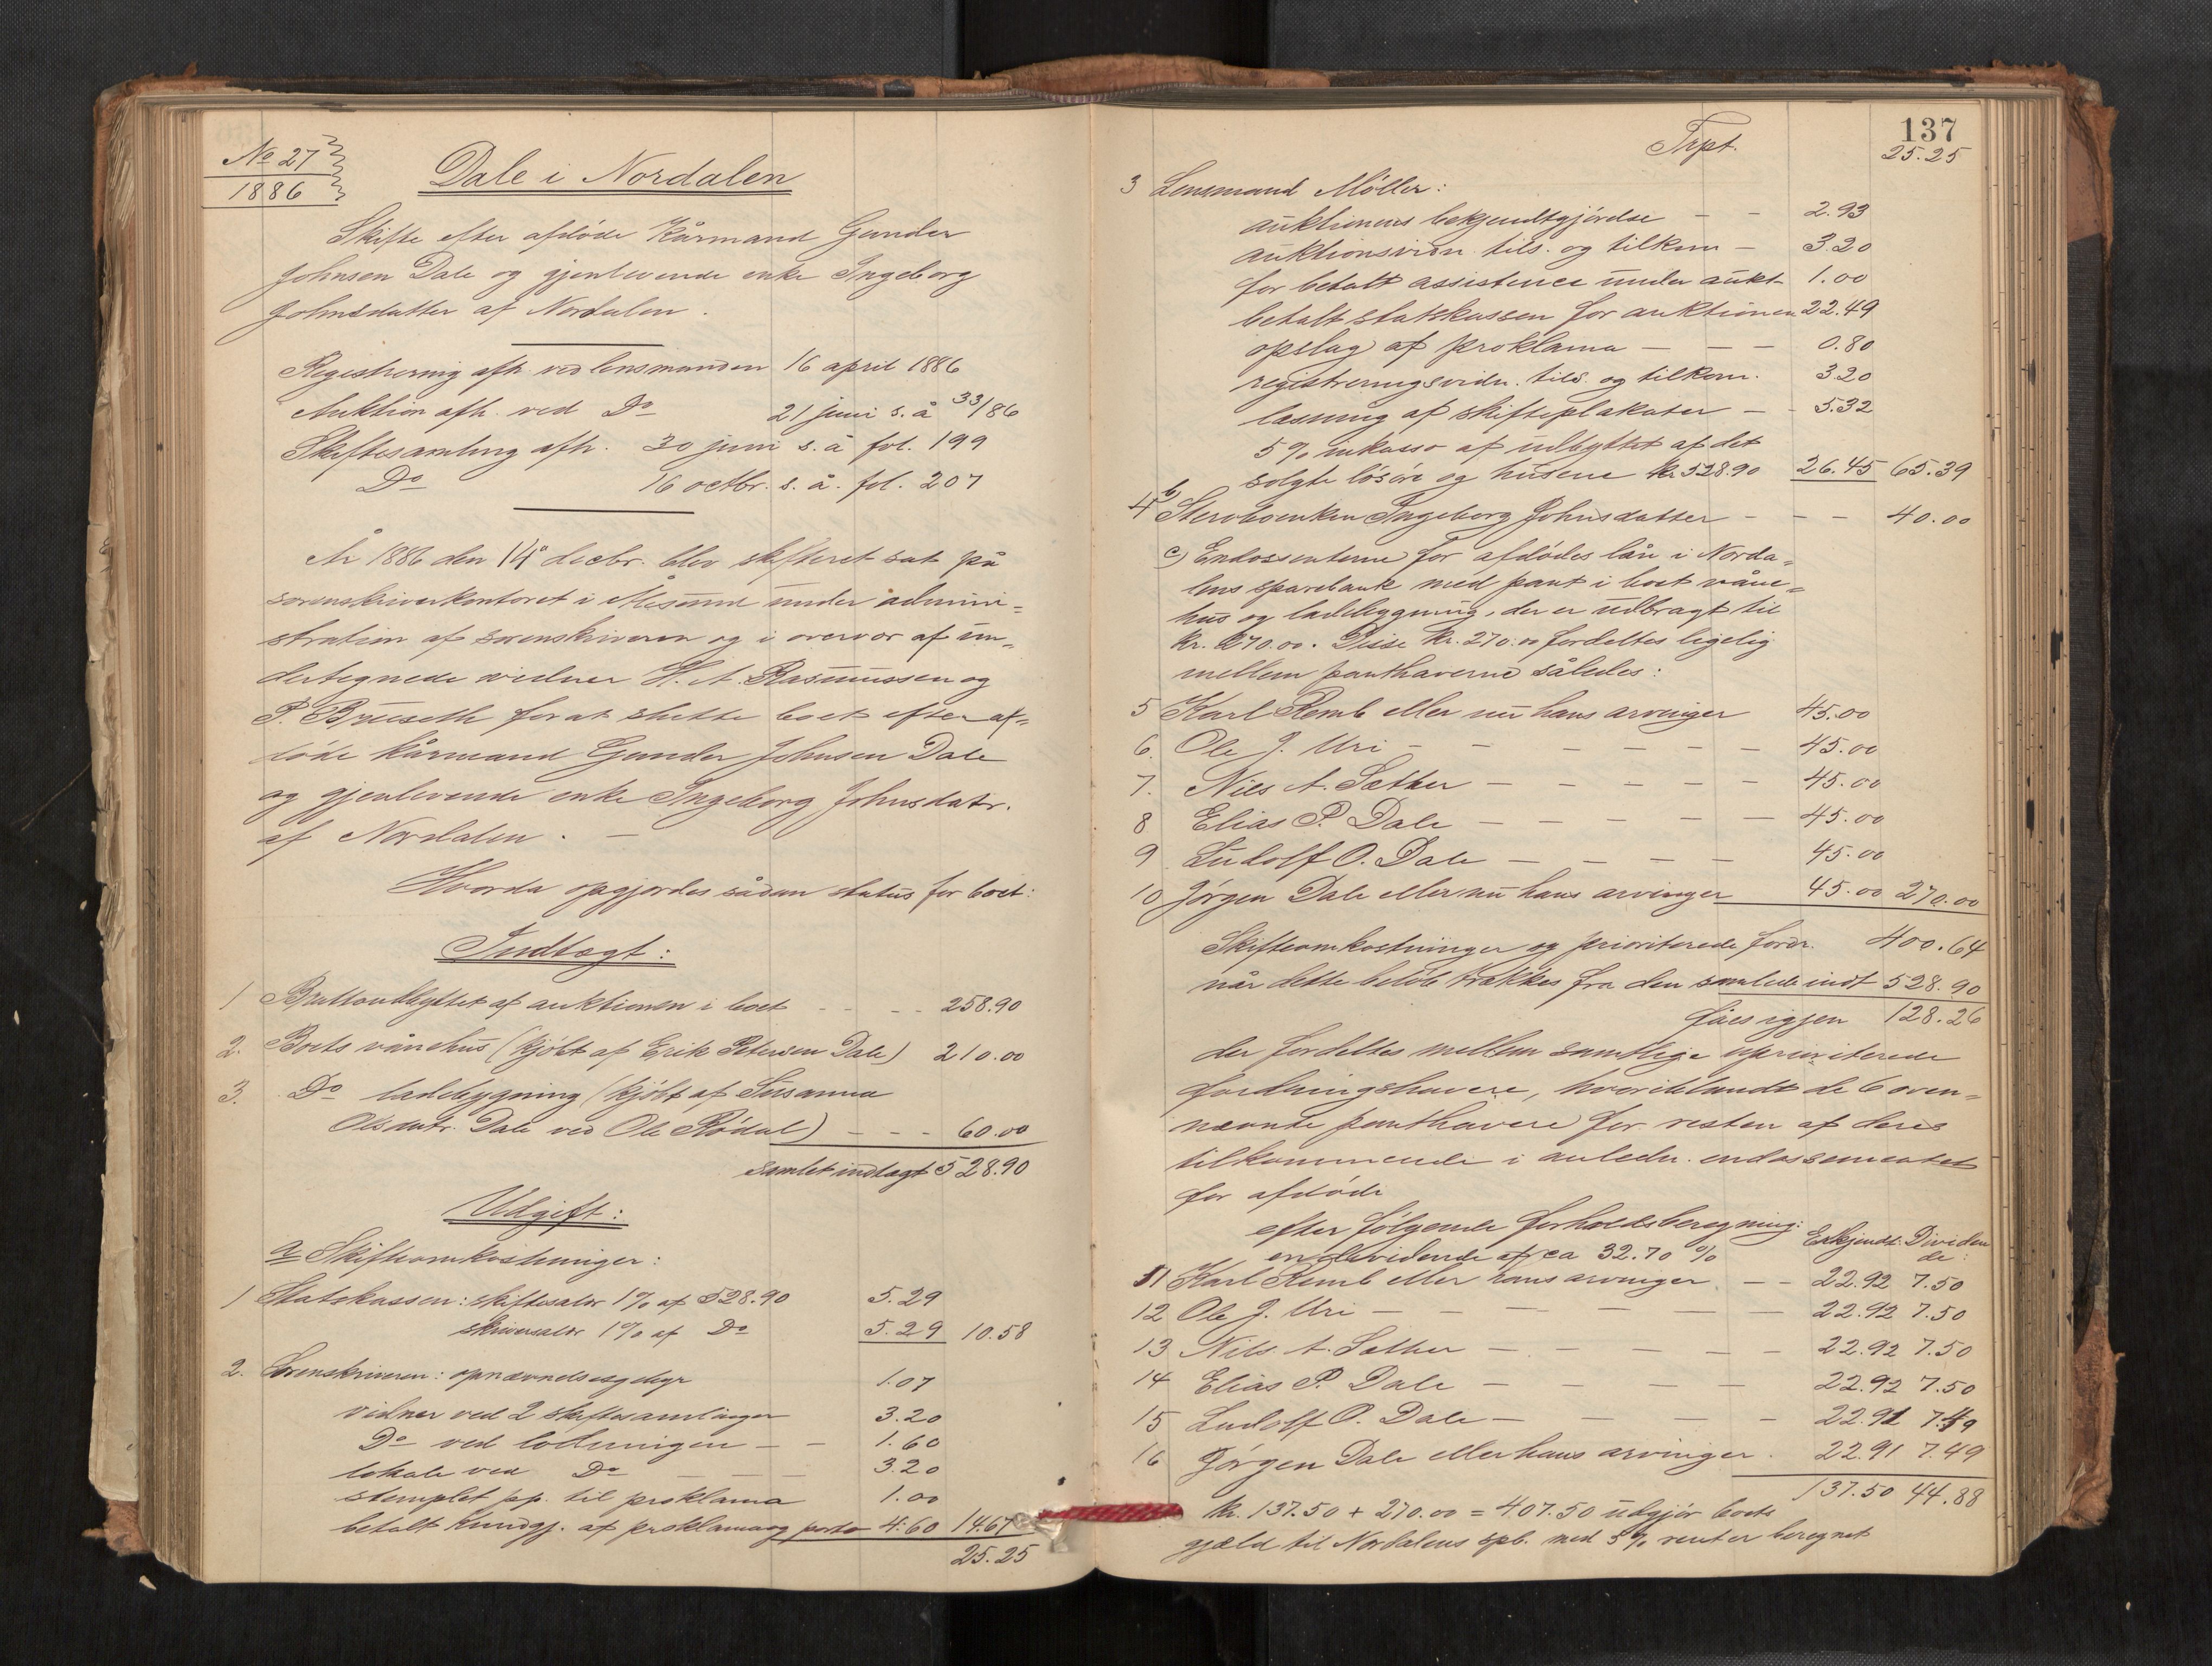 No 27
1886
Dale i Nordalen
Skifte efter afdøde Kårmand Gunder
Johnsen Dale og gjenlevende enke Ingeborg
Johnsdatter af Nordalen.
Registrering afh. ved lensmanden 16 april 1886
Auktion afh. ved Do 21 juni s. å 33/86
Skiftesamling afh. 30 juni s. å fol. 199
Do 16 octbr. s. å. fol. 207
År 1886 den 14de decbr. blev skifteret sat på
sorenskriverkontoret i Ålesund under admini-
stration af sorenskriveren og i overvær af un-
dertegnede vidner H. A. Rasmussen og
P. Brüseth for at slutte boet efter af-
døde kårmand Gunder Johnsen Dale
og gjenlevende enke Ingeborg Johnsdatr.
af Nordalen. —
Hvorda opgjordes sådan status for boet:
Indtægt:
1 Bruttoudbyttet af auktionen i boet - - - - 258.90
2. Boets vånehus (kjøbt af Erik Petersen Dale) 210.00
3. Do ladebygning (kjøbt af Susanna
Olsdatr. Dale ved Ole Rødal) - - - 60.00
samlet indtægt 528.90
Udgift:
a Skifteomkostninger:
1 Statskassen: skiftesalær 1% af 528.90 5.29
skriversalær 1% af Do 5.29 10.58
2. Sorenskriveren: opnævnelsesgebyr 1.07
vidner ved 2 skiftesamlinger 3.20
Do ved lodningen - - 1.60
lokale ved Do - - - 3.20
stemplet pp. til proklama 1.00
betalt kundgj. af proklama og porto 4.60 14.67
25.25
137
Trpt. 25.25
3 Lensmand Møller:
auktionens bekjendtgjørelse - - 2.93
auktionsvidn. tils. og tilkom - 3.20
for betalt assistence under aukt- 1.00
betalt statskassen for auktionen 22.49
opslag af proklama - - - 0.80
registreringsvidn. tils. og tilkom. 3.20
læsning af skifteplakater - - 5.32
5% inkasso af udbyttet af det
solgte løsøre og husene kr. 528.90 26.45 65.39
b)
4 Stervboenken Ingeborg Johnsdatter - - - 40.00
c) Endossenterne for afdødes lån i Norda-
lens sparebank med pant i boets våne-
hus og ladebygning, der er udbragt til
kr. 270.00. Disse kr. 270.00 fordeltes ligelig
mellem panthaverne således:
5 Karl Remb eller nu hans arvinger 45.00
6. Ole J. Uri - - - - - - 45.00
7. Nils A. Sæther - - - - - 45.00
8 Elias P. Dale - - - - - - 45.00
9 Ludolf O. Dale - - - - 45.00
10 Jørgen Dale eller nu hans arvinger 45.00 270.00
Skifteomkostninger og prioriterede fordr. 400.64
når dette beløb trækkes fra den samlede indt 528.90
fåes igjen 128.26
der fordeltes mellem samtlige uprioriterede
fordringshavere, hvoriblandt de 6 oven-
nævnte panthavere for resten af deres
tilkommende i anledn. endossementet
for afdøde
efter følgende forholdsberegning: Erkjendt: Dividen
en dividende af ca 32.70 % de:
11 Karl Remb eller hans arvinger - - 22.92 7.50
12 Ole J. Uri - - - - - - 22.92 7.50
13 Nils A. Sæther - - - - - 22.92 7.50
14 Elias P. Dale - - - - 22.92 7.50
15 Ludolf O. Dale - - - - 22.91 7.49
16 Jørgen Dale eller hans arvinger. 22.91 7.49
137.50 44.88
kr. 137.50 + 270.00 = 407.50 udgjør boets
gjæld til Nordalens spb. med 5% renter beregnet